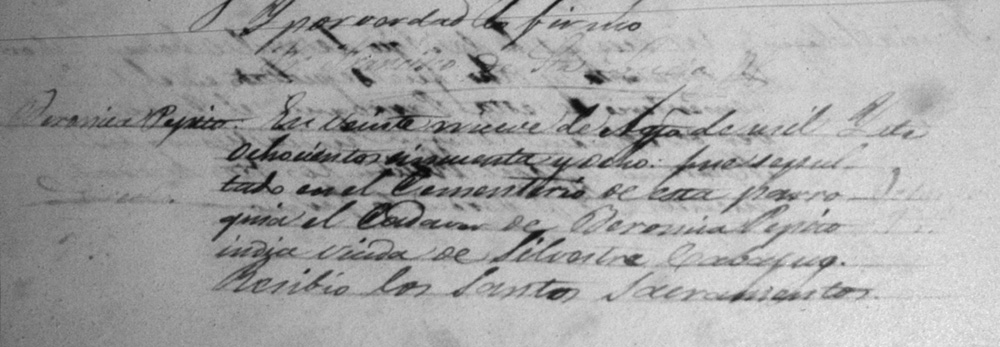 Y por verdad lo firmo
de
Veronica Pepito En veinte nueve de Agto de mil
ochocientos cincuenta y ocho: fue sepul-
tado en el Cementerio de esta parro-
quia el Cadaver de Veronica Pepito
india viuda de Silvestre Cabaypug.
Recibio los Santos Sacramentos.